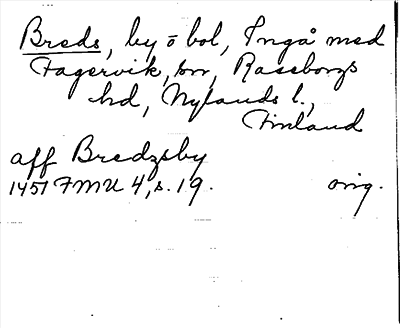 Breds, by o bol, Ingå med
Fagervik, sn, Raseborgs
hd, Nylands l.,
Finland
aff Bredzsby
1451 FMU 4, s. 19. orig.